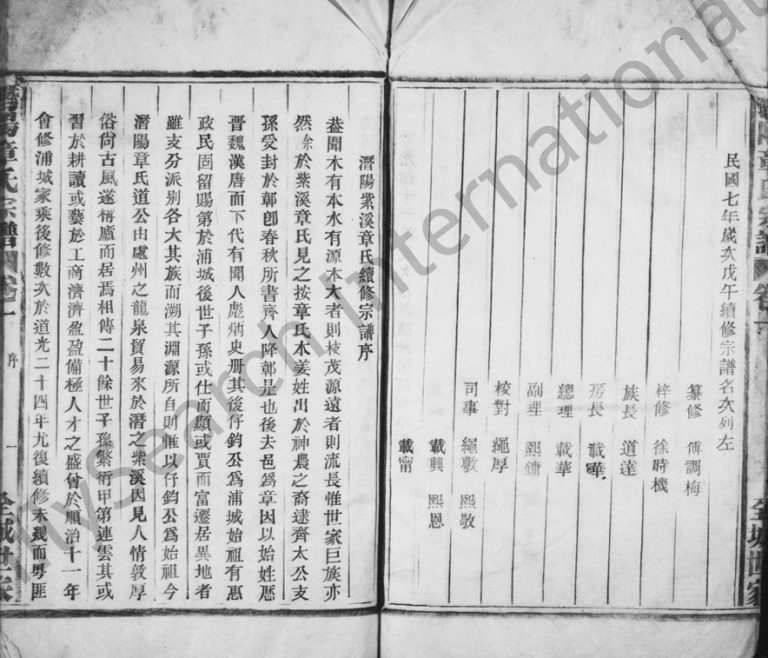 民國七年歲次戊午續修宗譜名次列左
纂修 傅調梅
梓修 徐時機
族長 道達
房長 載曄
總理 載華
副理 熙鏞
校對 繩厚
司事 繩數 熙敬
載興 熙恩
載甯
潛陽章氏宗譜 卷一
全城世家
潛陽紫溪章氏續修宗譜序
蓋聞木有本水有源本大者則枝茂源遠者則流長惟世家巨族亦
然餘於紫溪章氏見之按章氏本姜姓出於神農之裔逮齊太公支
孫受封於鄣卽春秋所書齊人降鄣是也後去邑爲章因以始姓歷
晉魏漢唐而下代有聞人彪炳史册其後仔鈞公爲浦城始祖有惠
政民固留賜第於浦城後世子孫或仕而顯或賈而富遷居異地者
雖支分派別各大其族而溯其淵源所自則惟以仔鈞公爲始祖今
潛陽章氏道公由處州之龍泉貿易來於潛之紫溪因見人情敦厚
俗尙古風遂構廬而居焉相傳二十餘世子孫繁衍甲第連雲其或
習於耕讀或藝於工商濟濟盈盈備極人才之盛曾於順治十一年
會修浦城家乘後修數次於道光二十四年尤復續修未幾而粵匪
潛陽章氏宗譜 卷一 序 一 全城世家
MySearch International